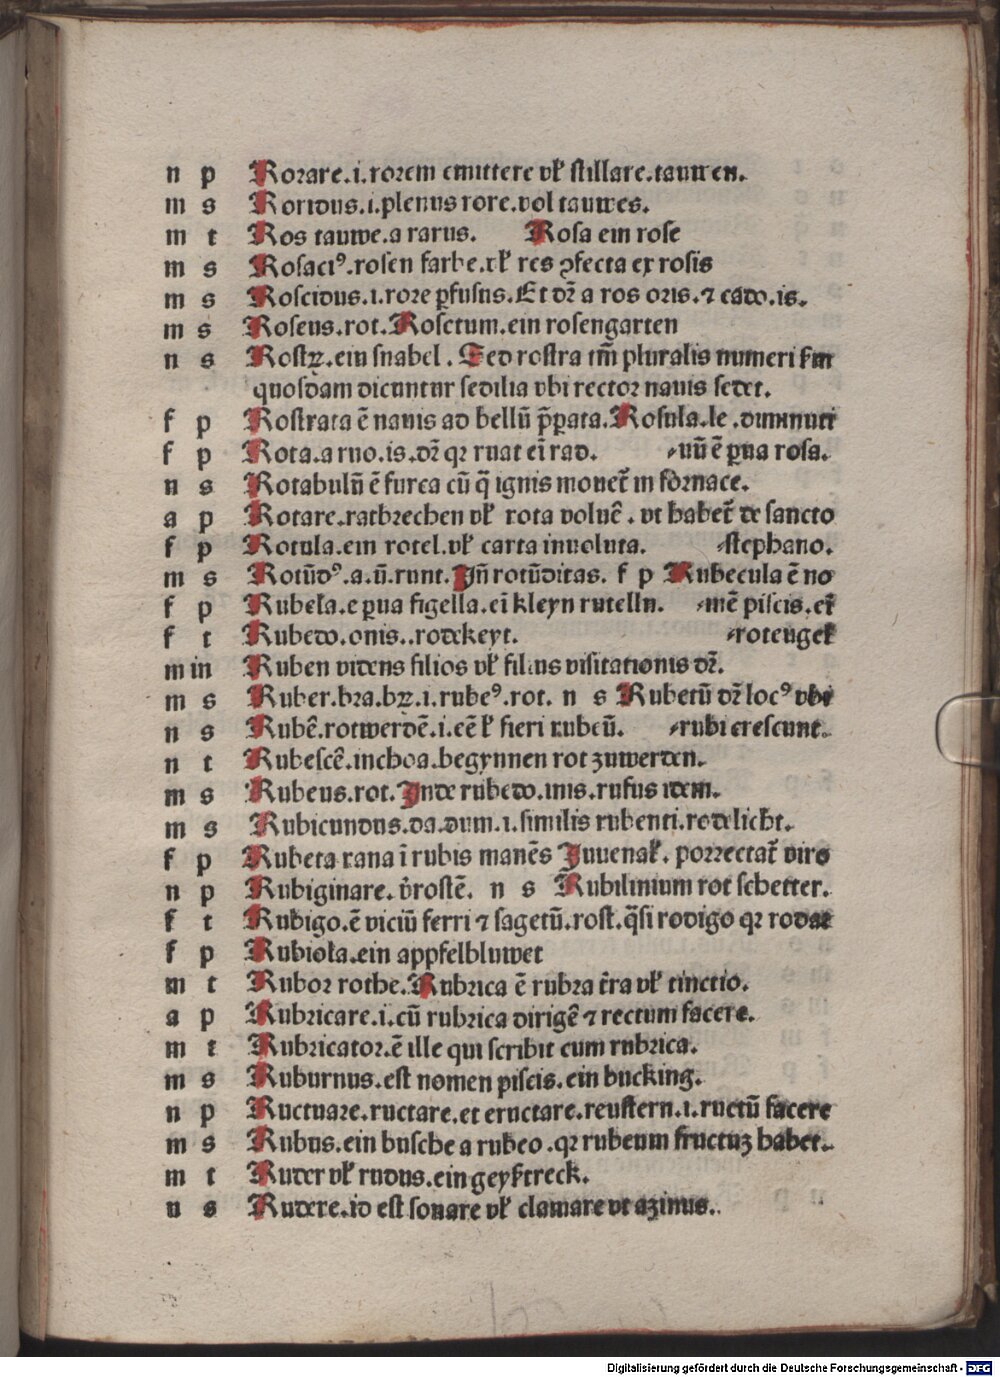 n p Rorare.i.rorem emittere vl' stillare.tauwen.
m s Roridus.i.plenus rore.vol tauwes.
m t Ros tauwe.a rarus. Rosa ein rose
m s Rosaciꝰ.rosen farbe.vl' res ꝓfecta ex rosis
m s Roscidus.i.rore ꝑfusus.Et dr̄ a ros oris.⁊ cado.is.
m s Roseus.rot.Rosetum.ein rosengarten
n s Rostꝝ.ein snabel. Sed rostra tm̄ pluralis numeri ẜm
quosdam dicuntur sedilia vbi rector nauis sedet.
f p Rostrata ē nauis ad bellū p̄ꝑata.Rosula.le.diminuti
f p Rota.a ruo.is.dr̄ qꝛ ruat eī rad. uū ē ꝑua rosa.
n s Rotabulū ē furca cū q̄ ignis mouet̄ in fornace.
a p Rotare.ratbrechen vl' rota voluē. vt habet̄ de sancto
f p Rotula.ein rotel.vl' carta inuoluta. stephano.
m s Rotūdꝰ.a.ū.runt.Jn̄ rotūditas. f p Rubecula ē no
f p Rubela.e ꝑua figella.eī kleyn rutelln. mē piscis.eī
f t Rubedo.onis..rodekeyt. roteugel'
m in Ruben videns filios vl' filius visitationis dr̄.
m s Ruber.bra.bꝝ.i.rubeꝰ.rot. n s Rubetū dr̄ locꝰ vbi
n s Rubē.rotwerdē.i.eē l' fieri rubeū. rubi crescunt.
n t Rubescē.inchoa.begynnen rot zuwerden.
m s Rubeus.rot.Jnde rubedo.inis.rufus idem.
m s Rubicundus.da.dum.i.similis rubenti.rodelicht.
f p Rubeta rana ī rubis manēs Juuenal'. porrectat̄ viro
n p Rubiginare. v̄rostē. n s Rubilinium rot schetter.
f t Rubigo.ē viciū ferri ⁊ sagetū.rost.q̄si rodigo qꝛ rodat
f p Rubiola.ein appfelbluwet
m t Rubor rothe.Rubrica ē rubra t̄ra vl' tinctio.
a p Rubricare.i.cū rubrica dirigē ⁊ rectum facere.
m t Rubricator.ē ille qui scribit cum rubrica.
m s Ruburnus.est nomen piscis.ein bucking.
n p Ructuare.ructare.et eructare.reustern.i.ructū facere
m s Rubus.ein busche a rubeo.qꝛ rubeum fructuꝫ habet.
m t Ruder vl' rudus.ein geyßtreck.
n s Rudere.id est sonare vl' clamare vt azinus.
Digitalisierung gefördert durch die Deutsche Forschungsgemeinschaft - DFG